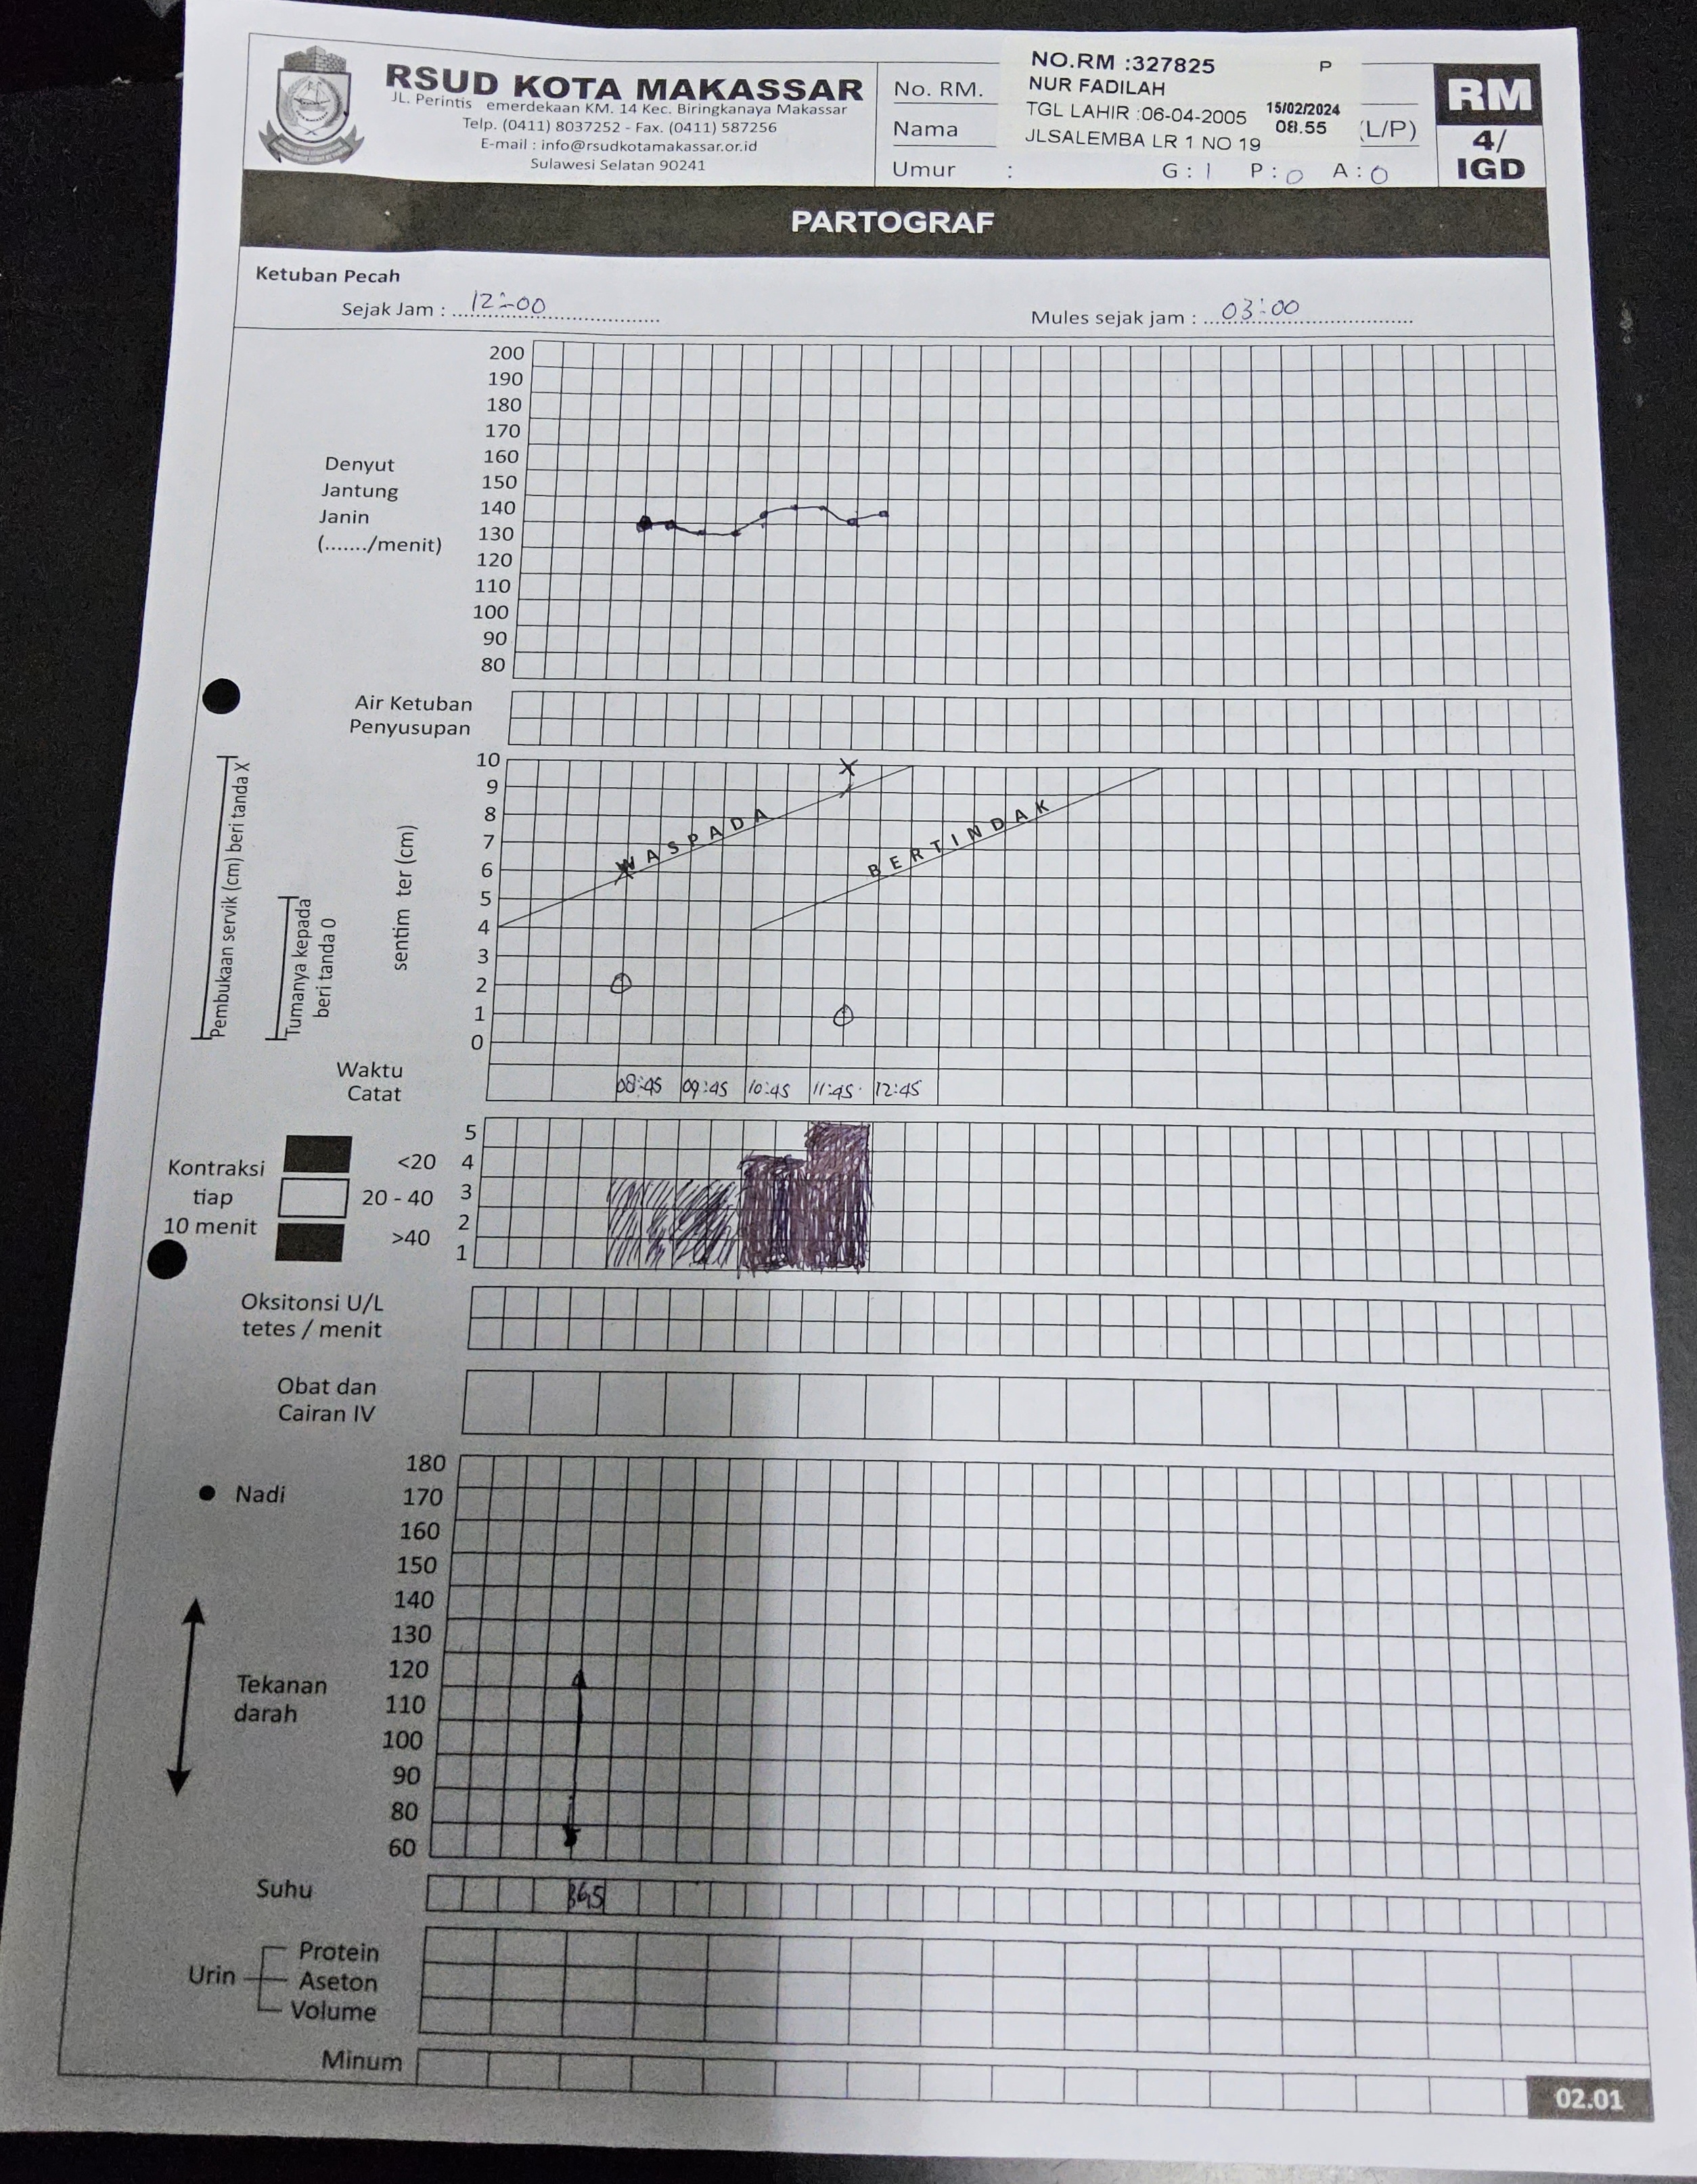 RSUD KOTA MAKASSAR
JL. Perintis emerdekaan KM. 14 Kec. Biringkanaya Makassar
Telp. (0411) 8037252 - Fax. (0411) 587256
E-mail : info@rsudkotamakassar.or.id
Sulawesi Selatan 90241
No. RM.
Nama
Umur :
NO.RM :327825 P
NUR FADILAH
TGL LAHIR :06-04-2005 15/02/2024
08.55
JLSALEMBA LR 1 NO 19
(L/P)
G : 1 P : 0 A : 0
RM
4/
IGD
PARTOGRAF
Ketuban Pecah
Sejak Jam : 12:00
Mules sejak jam : 03:00
Denyut
Jantung
Janin
(......./menit)
200
190
180
170
160
150
140
130
120
110
100
90
80
Air Ketuban
Penyusupan
Pembukaan servik (cm) beri tanda X
Tumanya kepada
beri tanda 0
sentim ter (cm)
10
9
8
7
6
5
4
3
2
1
0
WASPADA
BERTINDAK
Waktu
Catat
08:45 09:45 10:45 11:45 12:45
Kontraksi
tiap
10 menit
<20
20 - 40
>40
5
4
3
2
1
Oksitonsi U/L
tetes / menit
Obat dan
Cairan IV
Nadi
Tekanan
darah
180
170
160
150
140
130
120
110
100
90
80
60
Suhu
36,5
Urin
Protein
Aseton
Volume
Minum
02.01